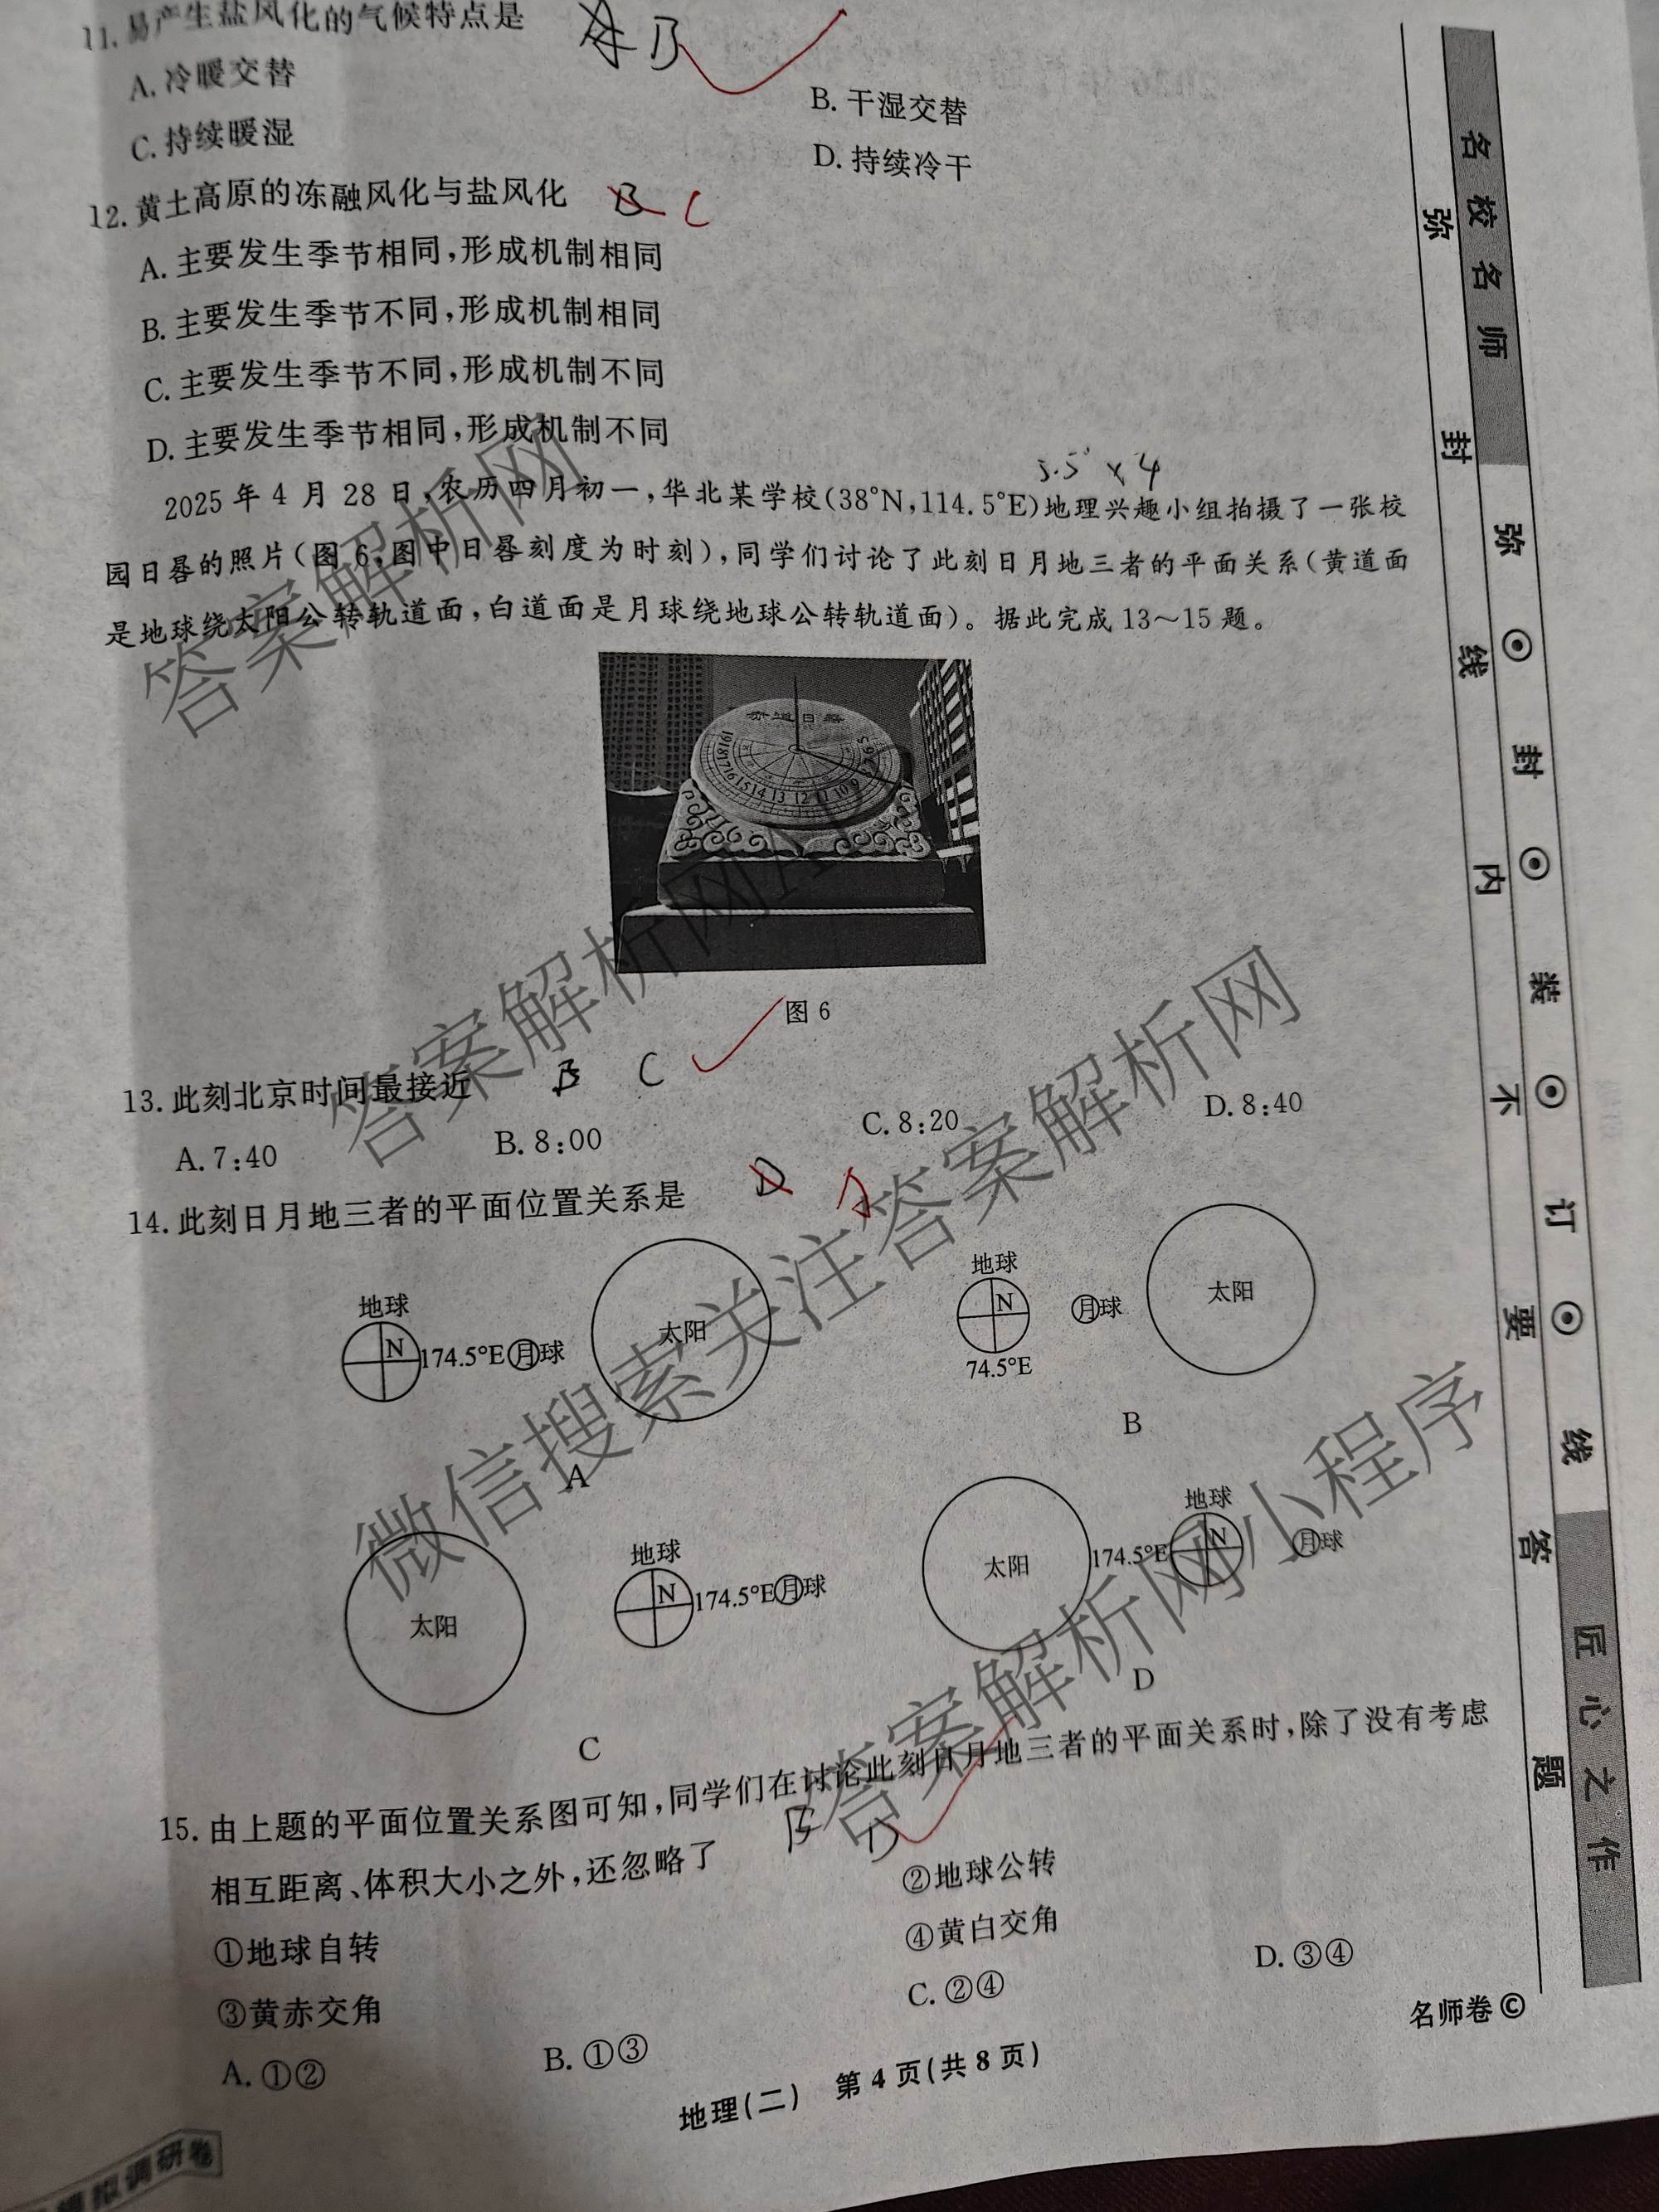 11. 易产生盐风化的气候特点是 B
A. 冷暖交替
B. 干湿交替
C. 持续暖湿
D. 持续冷干
12. 黄土高原的冻融风化与盐风化 B C
A. 主要发生季节相同,形成机制相同
B. 主要发生季节不同,形成机制相同
C. 主要发生季节不同,形成机制不同
D. 主要发生季节相同,形成机制不同
5.5° × 4
2025 年 4 月 28 日,农历四月初一,华北某学校(38°N,114.5°E)地理兴趣小组拍摄了一张校
园日晷的照片(图 6,图中日晷刻度为时刻),同学们讨论了此刻日月地三者的平面关系(黄道面
是地球绕太阳公转轨道面,白道面是月球绕地球公转轨道面)。据此完成 13～15 题。
赤道日晷
19 18 17 16 15 14 13 12 11 10 9
图 6
13. 此刻北京时间最接近 B C
A. 7:40
B. 8:00
C. 8:20
D. 8:40
14. 此刻日月地三者的平面位置关系是 D A
地球
N
174.5°E 月球
太阳
A
地球
N
月球
太阳
74.5°E
B
太阳
地球
N
174.5°E 月球
C
太阳
174.5°E
地球
N
月球
D
15. 由上题的平面位置关系图可知,同学们在讨论此刻日月地三者的平面关系时,除了没有考虑
相互距离、体积大小之外,还忽略了 B D
①地球自转
②地球公转
③黄赤交角
④黄白交角
A. ①②
B. ①③
C. ②④
D. ③④
地理(二) 第 4 页(共 8 页)
名师卷 ©
模拟调研卷
名校名师
弥 封 线 内 不 要 答 题
弥 封 装 订 线
匠心之作
答案解析网
答案解析网APP
微信搜索关注答案解析网
答案解析网小程序